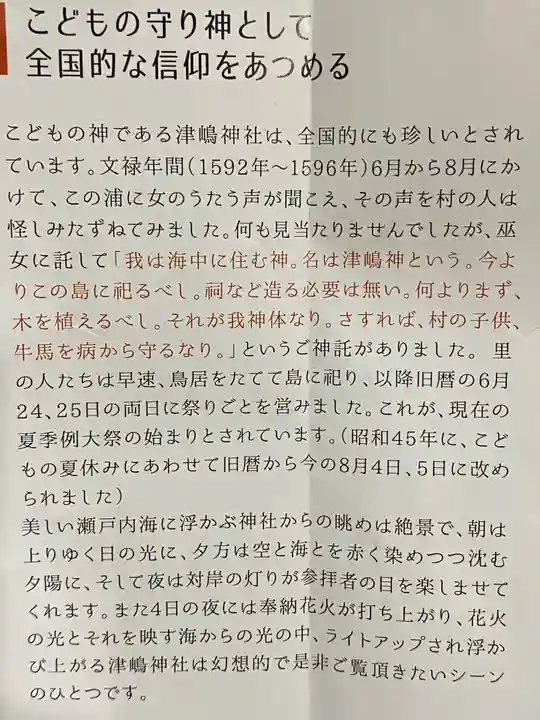 こどもの守り神として
全国的な信仰をあつめる
こどもの神である津嶋神社は、全国的にも珍しいとされ
ています。文禄年間(1592年～1596年)6月から8月にか
けて、この浦に女のうたう声が聞こえ、その声を村の人は
怪しみたずねてみました。何も見当たりませんでしたが、巫
女に託して「我は海中に住む神。名は津嶋神という。今よ
りこの島に祀るべし。祠など造る必要は無い。何よりまず、
木を植えるべし。それが我神体なり。さすれば、村の子供、
牛馬を病から守るなり。」というご神託がありました。 里
の人たちは早速、鳥居をたてて島に祀り、以降旧暦の6月
24、25日の両日に祭りごとを営みました。これが、現在の
夏季例大祭の始まりとされています。(昭和45年に、こど
もの夏休みにあわせて旧暦から今の8月4日、5日に改め
られました)
美しい瀬戸内海に浮かぶ神社からの眺めは絶景で、朝は
上りゆく日の光に、夕方は空と海とを赤く染めつつ沈む
夕陽に、そして夜は対岸の灯りが参拝者の目を楽しませて
くれます。また4日の夜には奉納花火が打ち上がり、花火
の光とそれを映す海からの光の中、ライトアップされ浮か
び上がる津嶋神社は幻想的で是非ご覧頂きたいシーン
のひとつです。